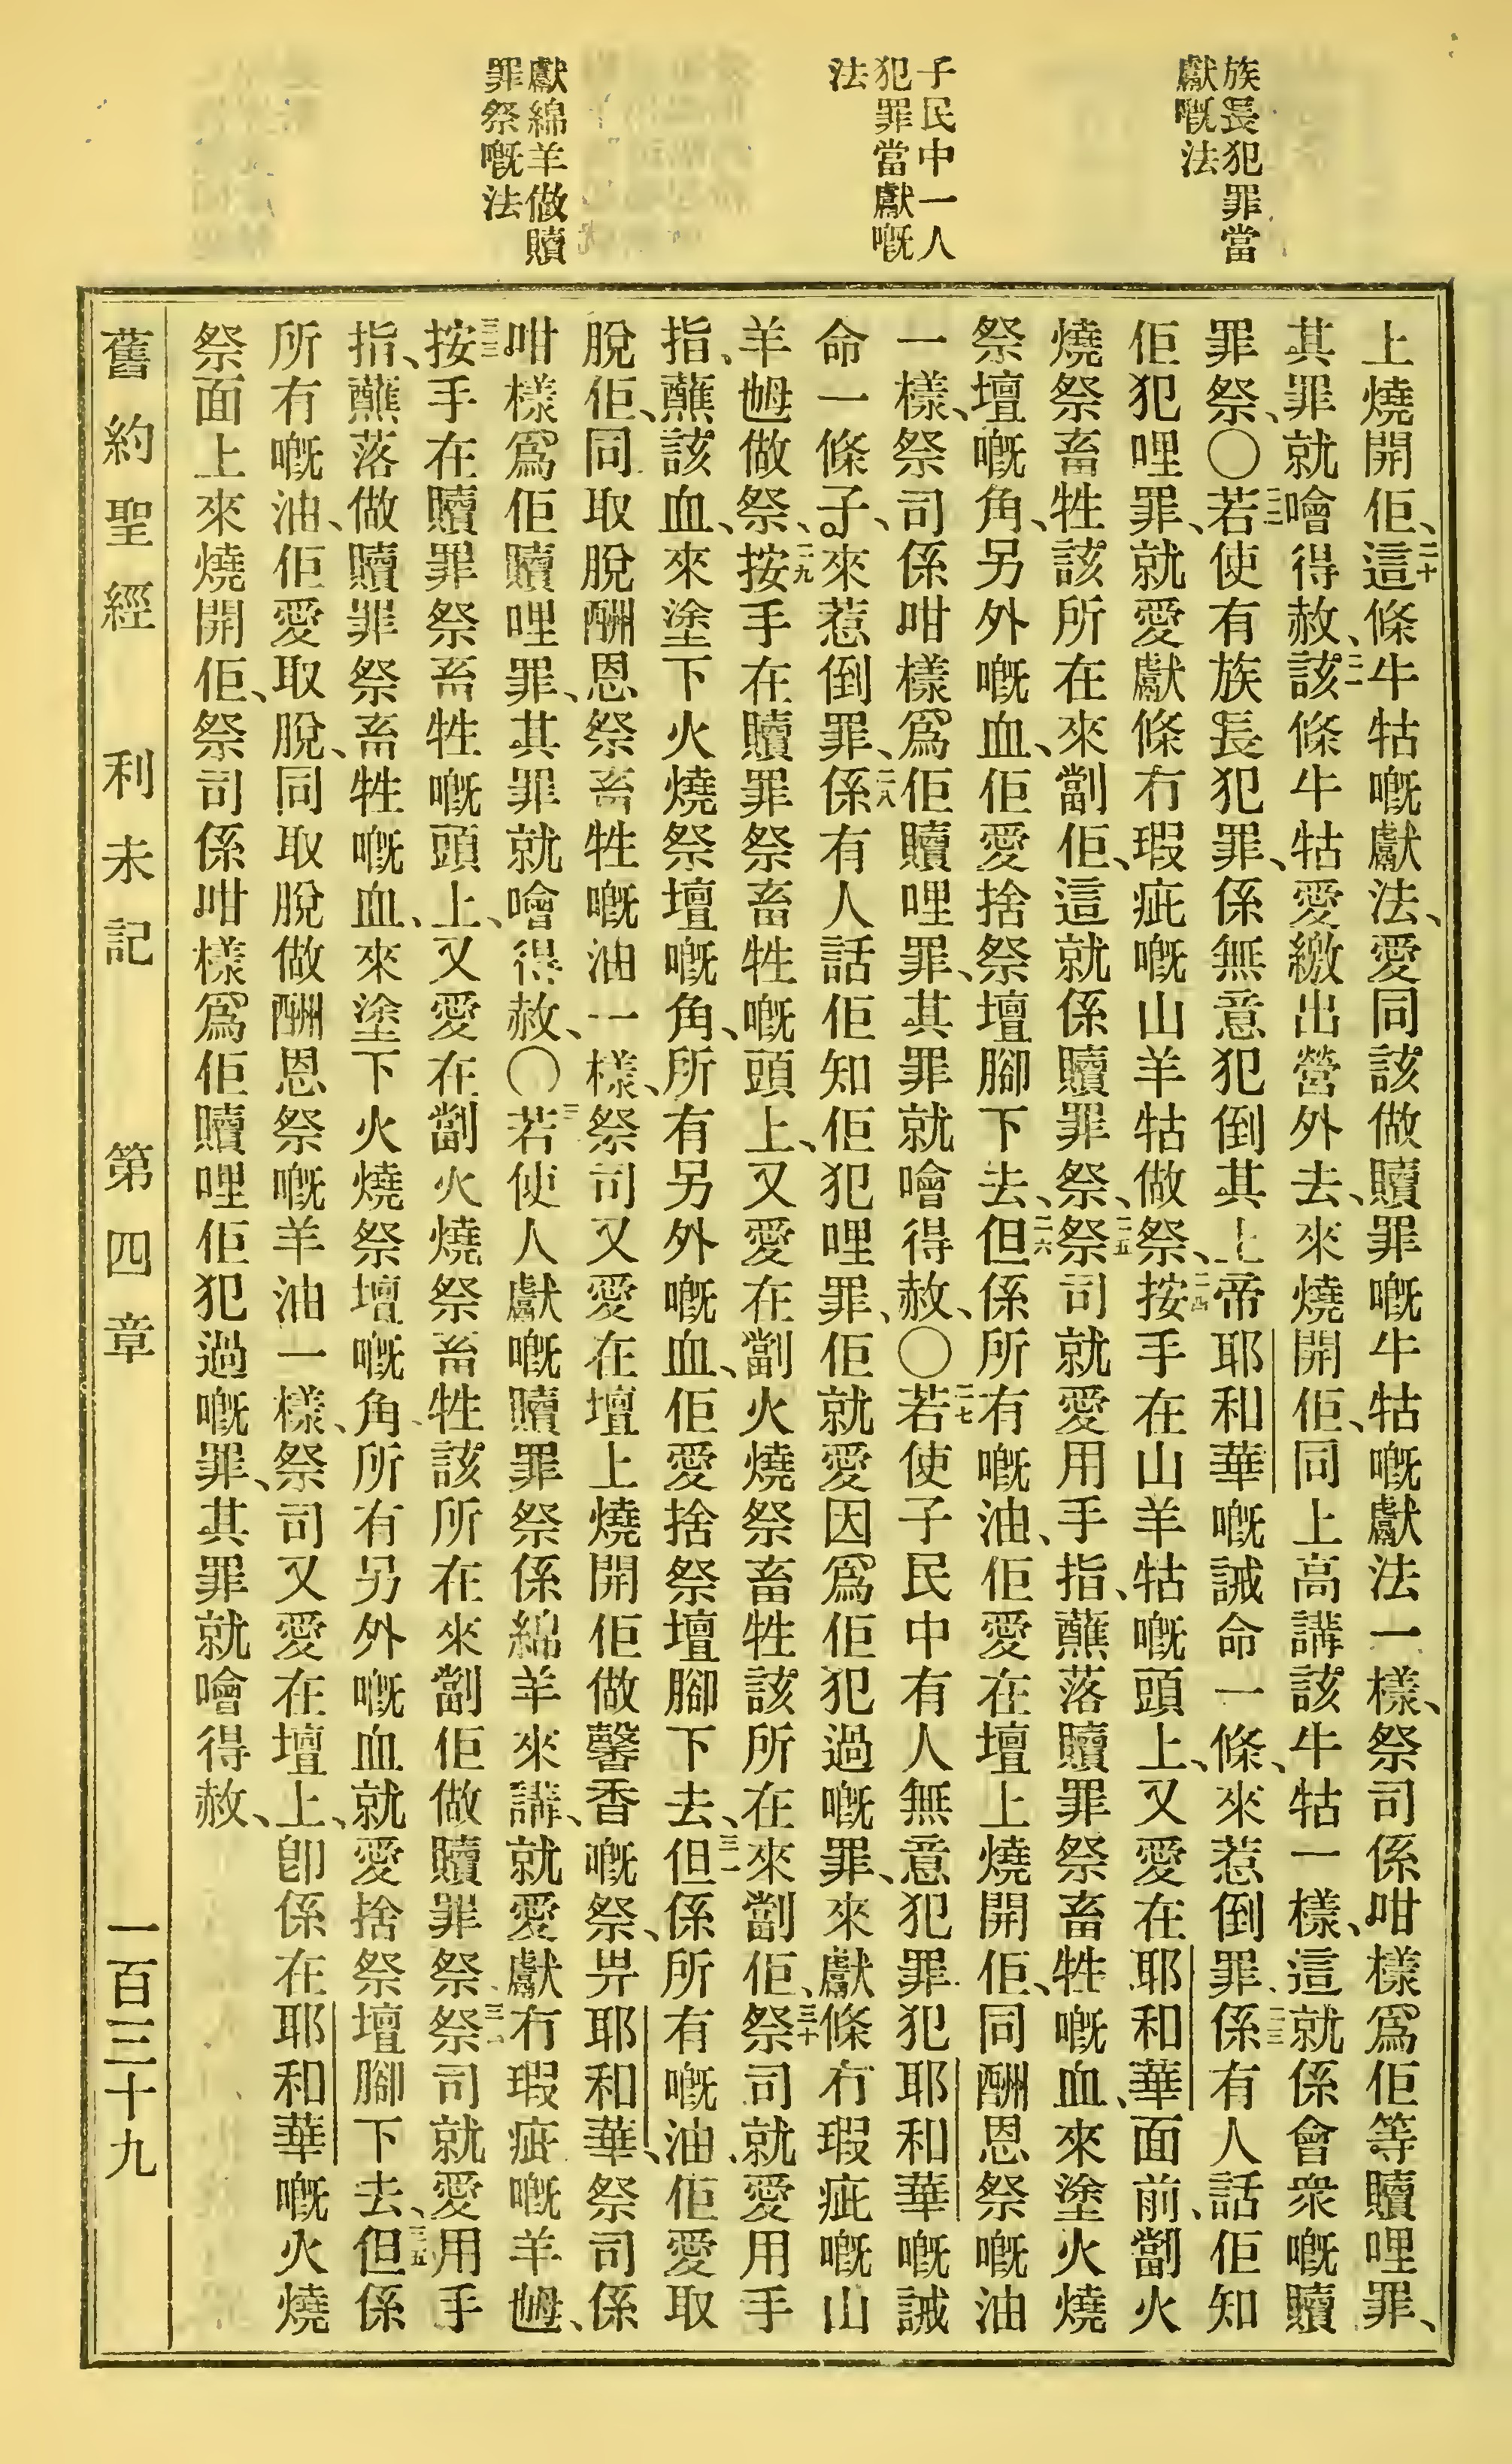 族長犯罪當
獻嘅法
子民中一人
犯罪當獻嘅
法
獻綿羊做贖
罪祭嘅法
上燒開佢、二十這條牛牯嘅獻法、愛同該做贖罪嘅牛牯嘅獻法一樣、祭司係咁樣爲佢等贖哩罪、
其罪就噲得赦、二一該條牛牯愛繳出營外去、來燒開佢、同上高講該牛牯一樣、這就係會衆嘅贖
罪祭、〇二二若使有族長犯罪、係無意犯倒其上帝耶和華嘅誡命一條、來惹倒罪、二三係有人話佢知
佢犯哩罪、就愛獻條冇瑕疵嘅山羊牯做祭、二四按手在山羊牯嘅頭上、又愛在耶和華面前、劏火
燒祭畜牲該所在來劏佢、這就係贖罪祭、二五祭司就愛用手指、蘸落贖罪祭畜牲嘅血、來塗火燒
祭壇嘅角、另外嘅血、佢愛捨祭壇腳下去、二六但係所有嘅油、佢愛在壇上燒開佢、同酬恩祭嘅油
一樣、祭司係咁樣爲佢贖哩罪、其罪就噲得赦、〇二七若使子民中有人無意犯罪、犯耶和華嘅誡
命一條子、來惹倒罪、二八係有人話佢知佢犯哩罪、佢就愛因爲佢犯過嘅罪、來獻條冇瑕疵嘅山
羊𡜵做祭、二九按手在贖罪祭畜牲嘅頭上、又愛在劏火燒祭畜牲該所在來劏佢、三十祭司就愛用手
指、蘸該血、來塗下火燒祭壇嘅角、所有另外嘅血、佢愛捨祭壇腳下去、三一但係所有嘅油、佢愛取
脫佢、同取脫酬恩祭畜牲嘅油一樣、祭司又愛在壇上燒開佢做馨香嘅祭、畀耶和華、祭司係
咁樣爲佢贖哩罪、其罪就噲得赦、〇三二若使人獻嘅贖罪祭係綿羊來講、就愛獻冇瑕疵嘅羊𡜵、
三三按手在贖罪祭畜牲嘅頭上、又愛在劏火燒祭畜牲該所在來劏佢做贖罪祭、三四祭司就愛用手
指、蘸落做贖罪祭畜牲嘅血、來塗下火燒祭壇嘅角、所有另外嘅血、就愛捨祭壇腳下去、三五但係
所有嘅油、佢愛取脫、同取脫做酬恩祭嘅羊油一樣、祭司又愛在壇上、卽係在耶和華嘅火燒
祭面上來燒開佢、祭司係咁樣爲佢贖哩佢犯過嘅罪、其罪就噲得赦、
舊約聖經 利未記 第四章 一百三十九